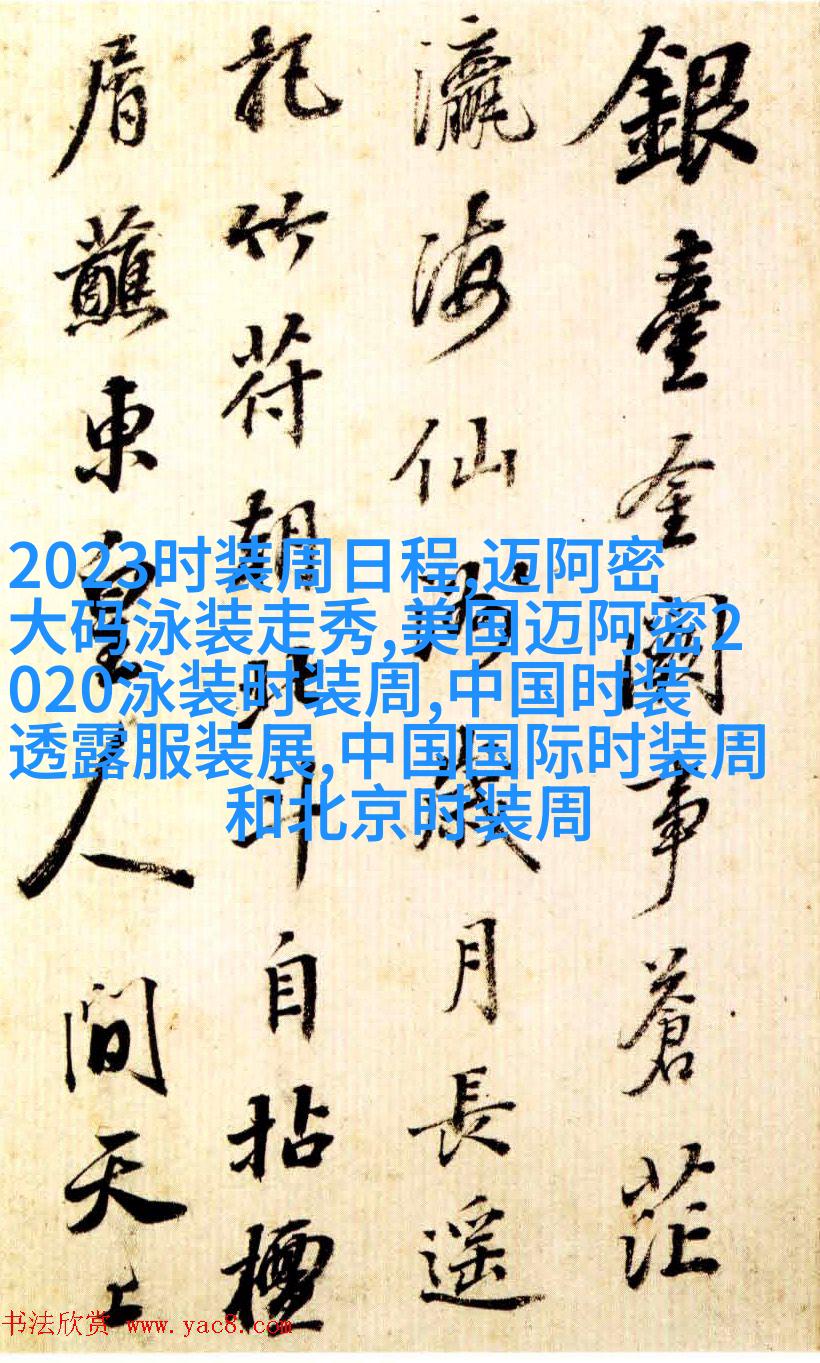 銀臺金闕事蒼茫
瀛海仙游歲月長遥
記竹符朝北斗自拈檀
屑蘸東皇人間天上
2023时装周日程,迈阿密
大码泳装走秀,美国迈阿密2
020泳装时装周,中国时装
透露服装展,中国国际时装周
和北京时装周
书法欣赏 www.yac8.com